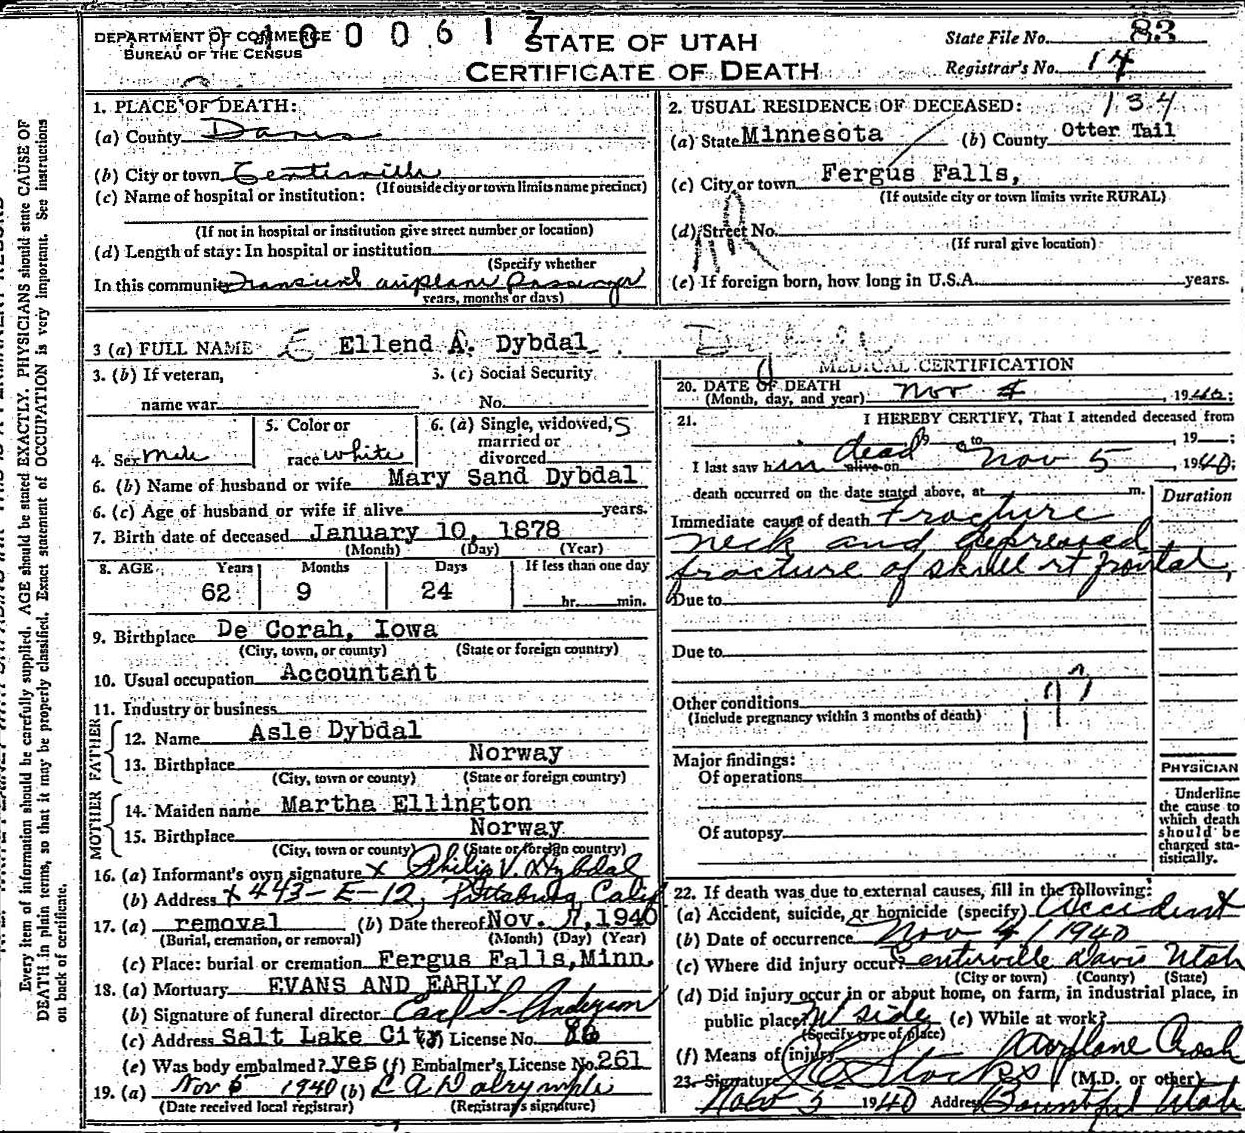 DEPARTMENT OF COMMERCE
BUREAU OF THE CENSUS
1000617
STATE OF UTAH
CERTIFICATE OF DEATH
State File No. 83
Registrar's No. 14
Every item of information should be carefully supplied. AGE should be stated EXACTLY. PHYSICIANS should state CAUSE OF
DEATH in plain terms, so that it may be properly classified. Exact statement of OCCUPATION is very important. See instructions
on back of certificate.
1. PLACE OF DEATH:
(a) County Davis
(b) City or town Centerville
(If outside city or town limits name precinct)
(c) Name of hospital or institution:
(If not in hospital or institution give street number or location)
(d) Length of stay: In hospital or institution
(Specify whether
In this community Transient airplane Passenger
years, months or days)
2. USUAL RESIDENCE OF DECEASED: 134
(a) State Minnesota (b) County Otter Tail
(c) City or town Fergus Falls,
(If outside city or town limits write RURAL)
(d) Street No.
(If rural give location)
(e) If foreign born, how long in U.S.A. years.
3 (a) FULL NAME E Ellend A. Dybdal
3. (b) If veteran,
name war
3. (c) Social Security
No.
4. Sex Male
5. Color or
race White
6. (a) Single, widowed, S
married or
divorced
6. (b) Name of husband or wife Mary Sand Dybdal
6. (c) Age of husband or wife if alive years.
7. Birth date of deceased January 10, 1878
(Month) (Day) (Year)
8. AGE Years Months Days If less than one day
62 9 24 hr. min.
9. Birthplace De Corah, Iowa
(City, town, or county) (State or foreign country)
10. Usual occupation Accountant
11. Industry or business
FATHER
12. Name Asle Dybdal
13. Birthplace Norway
(City, town or county) (State or foreign country)
MOTHER
14. Maiden name Martha Ellington
15. Birthplace Norway
(City, town or county) (State or foreign country)
16. (a) Informant's own signature x Philip V. Dybdal
(b) Address x 443-E-12, Pittsburg, Calif
17. (a) removal (b) Date thereof Nov. 7, 1940
(Burial, cremation, or removal) (Month) (Day) (Year)
(c) Place: burial or cremation Fergus Falls, Minn.
18. (a) Mortuary EVANS AND EARLY
(b) Signature of funeral director Carl S. Anderson
(c) Address Salt Lake City License No. 86
(e) Was body embalmed? yes (f) Embalmer's License No. 261
19. (a) Nov 5 1940 (b) C A Dalrymple
(Date received local registrar) (Registrar's signature)
MEDICAL CERTIFICATION
20. DATE OF DEATH
(Month, day, and year) Nov 4, 1940;
21. I HEREBY CERTIFY, That I attended deceased from
to , 19 ;
I last saw him dead alive on Nov 5, 1940;
death occurred on the date stated above, at m.
Duration
Immediate cause of death Fracture
neck and depressed
fracture of skull rt frontal,
Due to
Due to
Other conditions
(Include pregnancy within 3 months of death)
Major findings:
Of operations
Of autopsy
PHYSICIAN
Underline
the cause to
which death
should be
charged sta-
tistically.
22. If death was due to external causes, fill in the following:
(a) Accident, suicide, or homicide (specify) Accident
(b) Date of occurrence Nov 4 / 1940
(c) Where did injury occur? Centerville Davis Utah
(City or town) (County) (State)
(d) Did injury occur in or about home, on farm, in industrial place, in
public place? Mt side (e) While at work?
(Specify type of place)
(f) Means of injury Airplane Crash
23. Signature Stocks (M.D. or other)
Nov 5 1940 Address Bountiful Utah